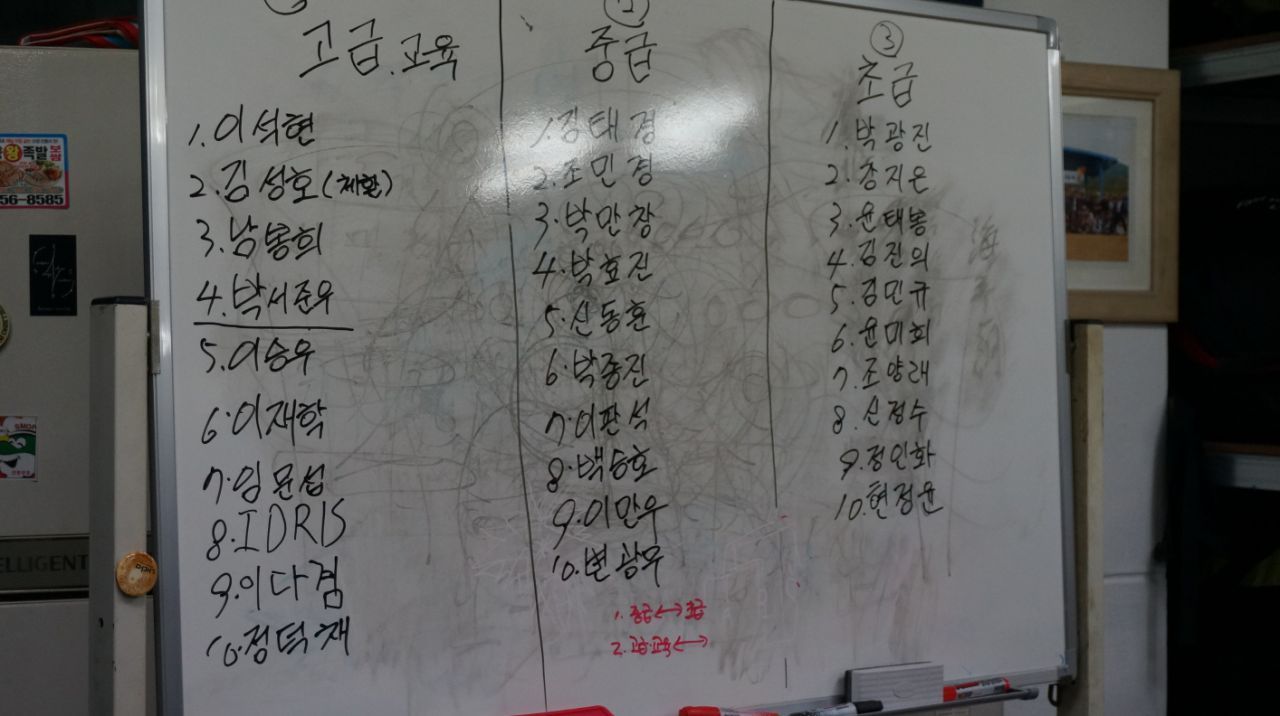 고급.교육
1.이석현
2.김성호(체험)
3.남봉희
4.박서준우
5.이승우
6.이재학
7.임문섭
8.IDRIS
9.이다겸
10.정덕채
②
중급
1.김태경
2.조민경
3.박만창
4.박효진
5.신동훈
6.박종진
7.이판석
8.백승호
9.이만우
10.변광무
1.중급↔초급
2.고급.교육↔
③
초급
1.박광진
2.홍지은
3.윤태봉
4.김진의
5.김민규
6.윤미희
7.조양래
8.신정수
9.정인화
10.현정윤
왕족발
56-8585
ELLIGENT